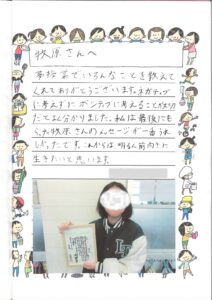 牧原さんへ
本授業でいろんなことを教えて
くれてありがとうございます。ネガティブ
に考えずにポジティブに考えることが大切
だとよく分かりました。私は最後にも
らった牧原さんのメッセージが一番うれ
しかったです。これからは、明るく前向きに
生きたいと思います